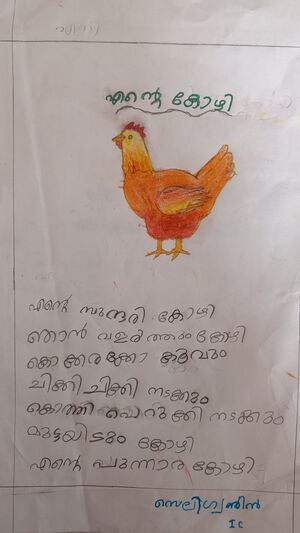 എന്റെ കോഴി
എന്റെ സുന്ദരി കോഴി
ഞാൻ വളർത്തും കോഴി
കൊക്കരക്കോ കൂവും
ചിക്കി ചിക്കി നടക്കും
കൊത്തി പെറുക്കി നടക്കും
മുട്ടയിടും കോഴി
എന്റെ പുന്നാര കോഴി
I C